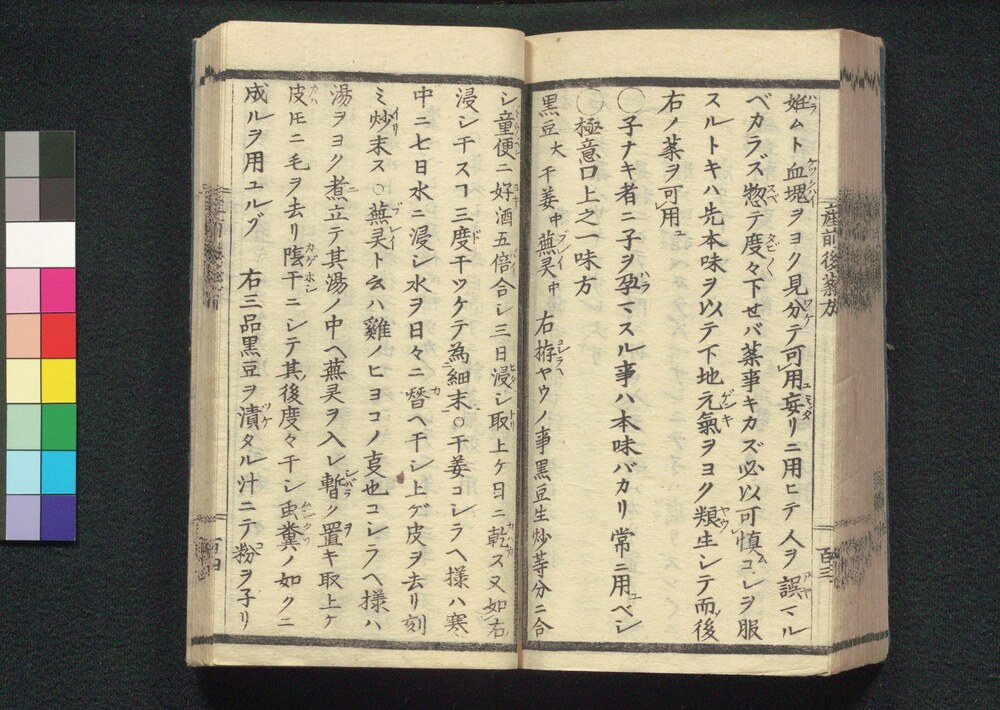 産前後薬方
百三
姙ムト血塊ヲヨク見分テ可用妄リニ用ヒテ人ヲ誤マル
ベカラズ惣テ度々下セバ薬事キカズ必以可慎コレヲ服
スルトキハ先本味ヲ以テ下地元氣ヲヨク粮生シテ而後
右ノ薬ヲ可用
○子ナキ者ニ子ヲ孕マスル事ハ本味バカリ常ニ用ベシ
○極意口上之一味方
黒豆大 干姜中 蕪㚑中 右拵ヤウノ事黒豆生炒等分ニ合
シ童便ニ好酒五倍合シ三日浸シ取上ケ日ニ乾ス又如右
浸シ干スヿ三度干ツケテ為細末○干姜コシラヘ様ハ寒
中ニ七日水ニ浸シ水ヲ日々ニ替ヘ干シ上ゲ皮ヲ去リ刻
ミ炒末ス○蕪㚑ト云ハ雞ノヒヨコノ㕝也コシラヘ様ハ
湯ヲヨク煮立テ其湯ノ中ヘ蕪㚑ヲ入レ暫ク置キ取上ケ
皮トモニ毛ヲ去リ陰干ニシテ其後度々干シ虫糞ノ如クニ
成ルヲ用ユルヿ 右三品黒豆ヲ漬タル汁ニテ粉ヲ子リ
百四